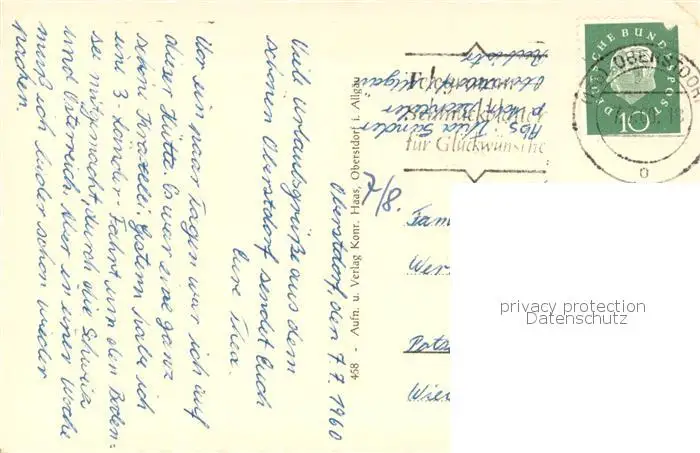 Oberstdorf, den 7.7.1960
Viele Urlaubsgrüße aus dem
schönen Oberstdorf sendet Euch
Eure Thea.
Vor ein paar Tagen war ich auf
dieser Hütte. Es war eine ganz
schöne Kraxelei. Gestern habe ich
eine 3-Länder-Fahrt um den Boden=
see mitgemacht, durch die Schweiz
und Österreich. Aber in einer Woche
muß ich leider schon wieder
packen.
458 - Aufn. u. Verlag Konr. Haas, Oberstdorf i. Allgäu
Abs. Thea
Oberstdorf/Allgäu
Schmuckblätter
für Glückwünsche
DEUTSCHE BUNDESPOST
10
OBERSTDORF
7/8.
Fam
Wer
Pots
Wien
privacy protection
Datenschutz